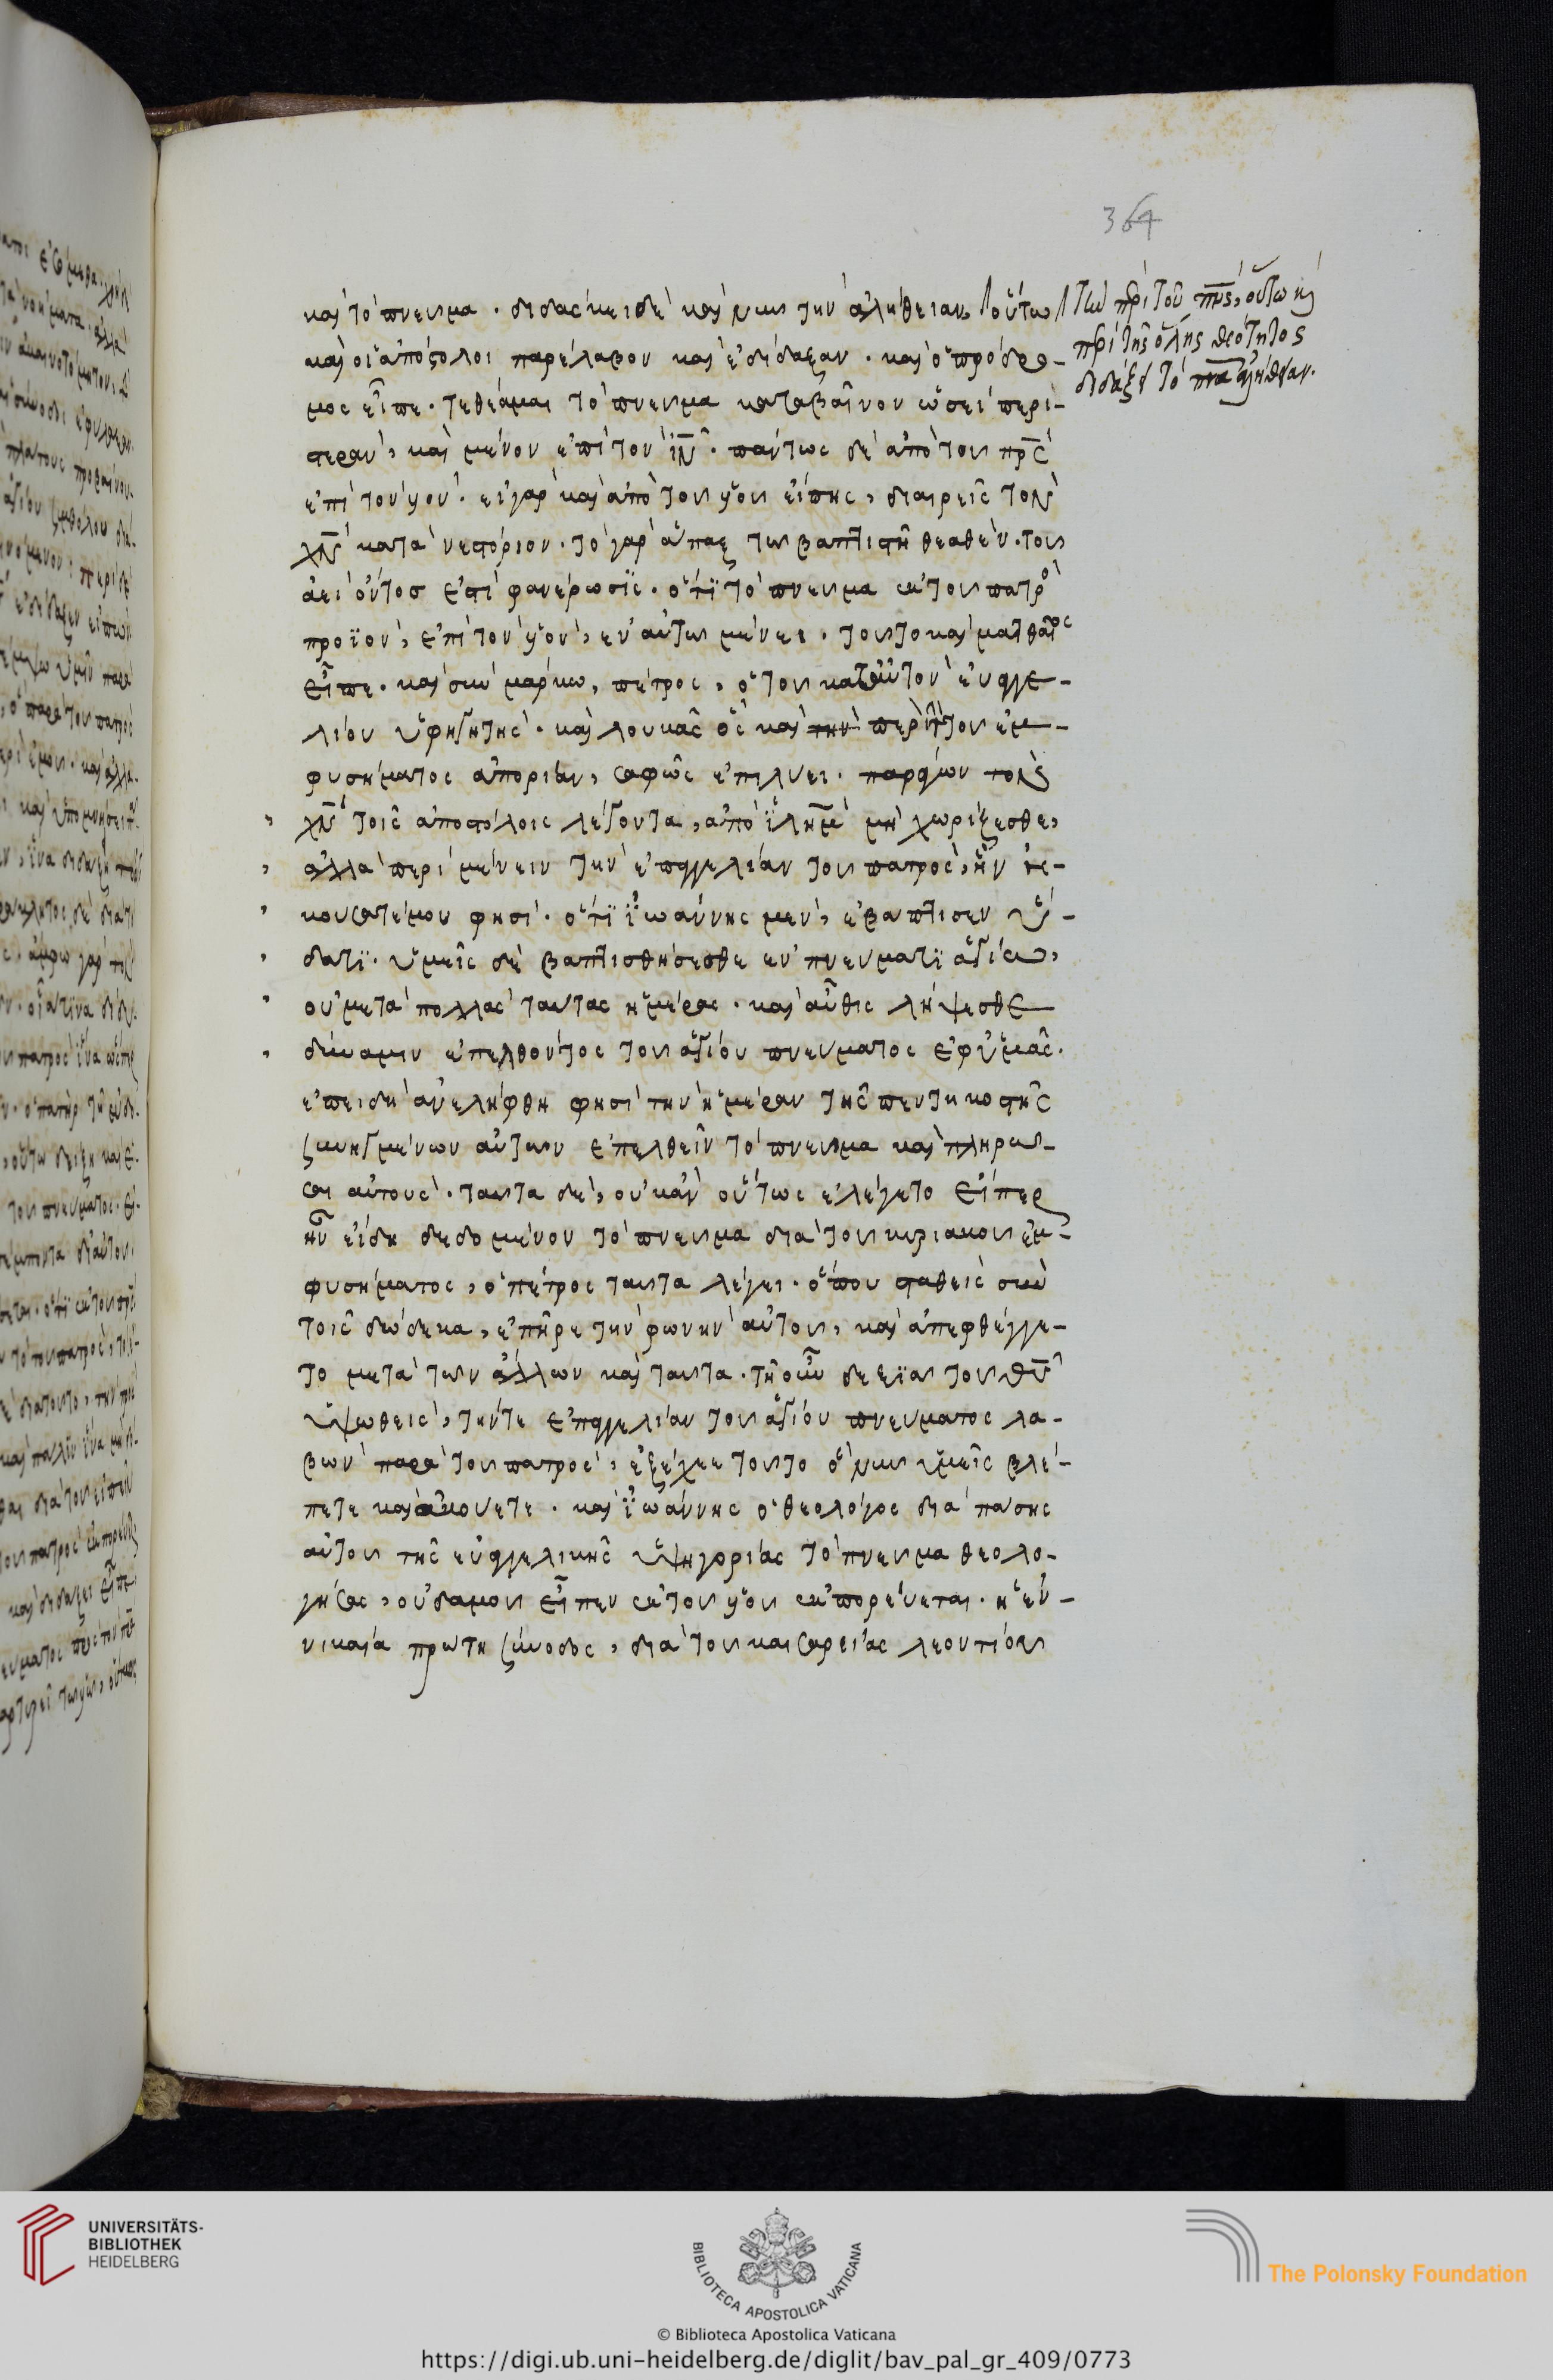 364
καὶ τὸ πνεῦμα. διδάσκει δὲ καὶ νῦν τὴν ἀλήθειαν, οὕτω
καὶ οἱ ἀπόστολοι παρέλαβον καὶ ἐδίδαξαν. καὶ ὁ πρόδρο-
μος εἶπε. τεθέαμαι τὸ πνεῦμα καταβαῖνον ὡσεὶ περι-
στερὰν, καὶ μένον ἐπὶ τὸν ἰν. πάντως δὲ ἀπὸ τοῦ πρς
ἐπὶ τὸν υἱόν. εἰ γὰρ καὶ ἀπὸ τοῦ υἱοῦ εἴπης, διαιρεῖς τὸν
χν κατὰ νεστόριον. τὸ γὰρ ἅπαξ τῶ βαπτιστῆ θεαθὲν. τοῦ
ἀεὶ ὄντος ἐστὶ φανέρωσϊς. ὅτϊ τὸ πνεῦμα ἐκ τοῦ πατρὸς
προϊὸν, ἐπὶ τὸν υἱὸν, ἐν αὐτῶ μένει. τοῦτο καὶ ματθαῖος
εἶπε. καὶ σὺν μάρκω, πέτρος, ὁ τοῦ κατ' αὐτὸν εὐαγγε-
λίου ὑφηγητής. καὶ λουκᾶς ὃς καὶ τὴν περὶ τοῦ ἐμ-
φυσήματος ἀπορίαν, σαφῶς ἐπιλύει. παράγων τὸν
χν τοῖς ἀποστόλοις λέγοντα, ἀπὸ ϊλημ μὴ χωρίζεσθε,
ἀλλὰ περιμένειν τὴν ἐπαγγελίαν τοῦ πατρὸς, ἣν ἠ-
κούσατέ μου φησί. ὅτϊ ϊωάννης μὲν, ἐβάπτισεν ὕ-
δατϊ. ὑμεῖς δὲ βαπτισθήσεσθε ἐν πνεύματϊ ἁγίω,
οὐ μετὰ πολλὰς ταύτας ἡμέρας. καὶ αὖθις λήψεσθε
δύναμιν ἐπελθόντος τοῦ ἁγίου πνεύματος ἐφ' ὑμᾶς.
ἐπειδὴ ἀνελήφθη φησὶ τὴν ἡμέραν τῆς πεντηκοστῆς
συνηγμένων αὐτῶν ἐπελθεῖν τὸ πνεῦμα καὶ πληρῶ-
σαι αὐτούς. ταῦτα δὲ, οὐκ ἂν οὕτως ἐλέγετο εἴπερ
ἦν εἴδη δεδομένον τὸ πνεῦμα διὰ τοῦ κυριακοῦ ἐμ-
φυσήματος, ὁ πέτρος ταῦτα λέγει. ὅπου σταθεὶς σὺν
τοῖς δώδεκα, ἐπῆρε τὴν φωνὴν αὐτοῦ, καὶ ἀπεφθέγγε-
το μετὰ τῶν ἄλλων καὶ ταῦτα. τῆ οὖν δεξϊᾶ τοῦ θυ
ὑψωθεὶς, τήν τε ἐπαγγελίαν τοῦ ἁγίου πνεύματος λα-
βὼν παρὰ τοῦ πατρὸς, ἐξέχεε τοῦτο ὃ νῦν ὑμεῖς βλέ-
πετε καὶ ἀκούετε. καὶ ϊωάννης ὁ θεολόγος διὰ πάσης
αὐτοῦ τῆς εὐαγγελικῆς ὑψηγορίας τὸ πνεῦμα θεολο-
γήσας, οὐδαμοῦ εἶπεν ἐκ τοῦ υἱοῦ ἐκπορεύεται. ἡ ἐν
νικαία πρώτη σύνοδος, διὰ τοῦ καισαρείας λεοντίου
τῶ πρὶ τοῦ πνς, οὕτω καὶ
πρὶ τῆς ὅλης θεότητος
διδάξει τὸ πνα ἀλήθειαν.
UNIVERSITÄTS-
BIBLIOTHEK
HEIDELBERG
BIBLIOTECA APOSTOLICA VATICANA
The Polonsky Foundation
© Biblioteca Apostolica Vaticana
https://digi.ub.uni-heidelberg.de/diglit/bav_pal_gr_409/0773